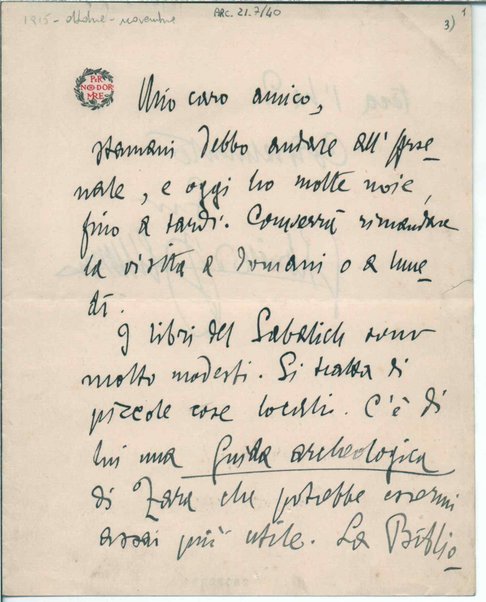 1915 - ottobre - novembre
ARC. 21.7/40
1
3)
PER
NON DOR
MIRE
Mio caro amico,
stamani debbo andare all'Arse-
nale, e oggi ho molte noie,
fino a tardi. Converrà rimandare
la visita a domani o a lune-
dì.
I libri del Sabalich sono
molto modesti. Si tratta di
piccole cose locali. C'è di
lui una Guida archeologica
di Zara che potrebbe essermi
assai più utile. La Biblio-